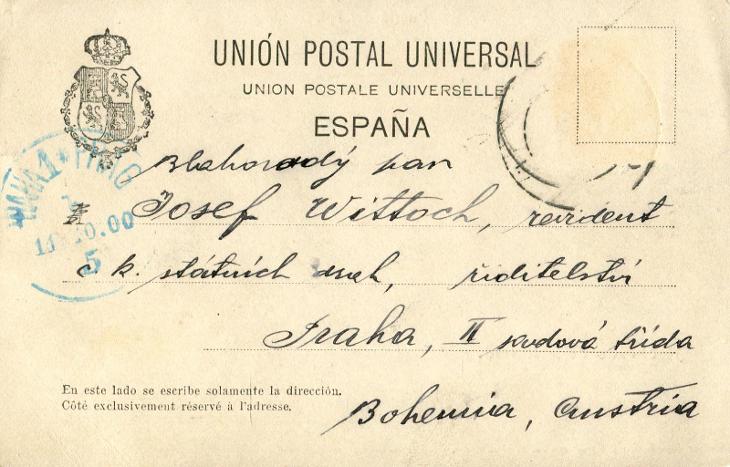 UNIÓN POSTAL UNIVERSAL
UNION POSTALE UNIVERSELLE
ESPAÑA
Blahorodý pan
Josef Wittoch, revident
c k. státních drah, ředitelství
Praha, II
třída
Bohemia, Austria
PRAHA 1 PRAG
00
5
En este lado se escribe solamente la dirección.
Côté exclusivement réservé à l'adresse.